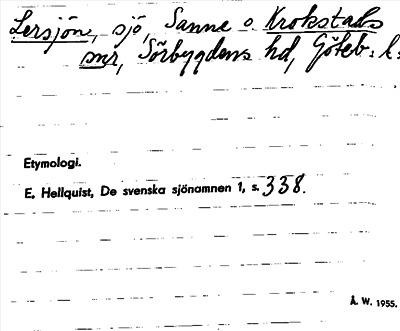 Lersjön, sjö, Sanne o Krokstads
snr, Sörbygdens hd, Göteb. l:
Etymologi.
E. Hellquist, De svenska sjönamnen 1, s. 338.
Å. W. 1955.